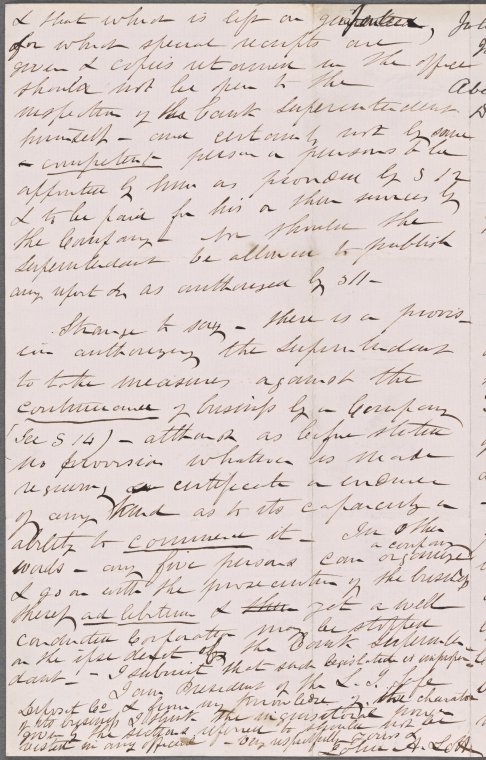 & that which is left on
for which special receipts are
given & copies retained in the office
should not be open to the
inspection of the Bank Superintendent
himself - and certainly not by some
- competent person or persons to be
appointed by him as provided by § 12
& to be paid for his or their services by
the Company - Nor should the
Superintendent be allowed to publish
any report &c as authorized by § 11 -
Strange to say - there is a provis-
ion authorizing the Superintendent
to take measures against the
continuance of business by a Company
[See § 14) - although as before stated
no provision whatever is made
requiring a certificate or evidence
of any kind as to its capacity or
ability to commence it - In other
words - any five persons can organize
a company
& go on with the prosecution of the business
thereof ad libitum & yet a well
conducted Corporation may be stopped
on the ipse dixit of the Bank Superinten-
dant! - I submit that such legislation is improper -
I am President of the L. I. Safe
Deposit Co & from my knowledge of the character
of its business I think the inquisitorial power
given by the sections referred to should not be
vested in any official - Very respectfully yours &c
John A. Lott